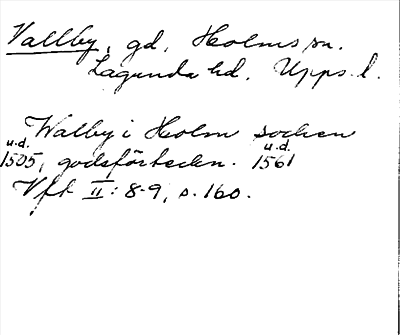 Vallby, gd, Holms sn.
Lagunda hd, Upps. l.
Walby i Holm socken
u.d. u.d.
1505, godsförteckn. 1561
Vft II: 8-9, s. 160.